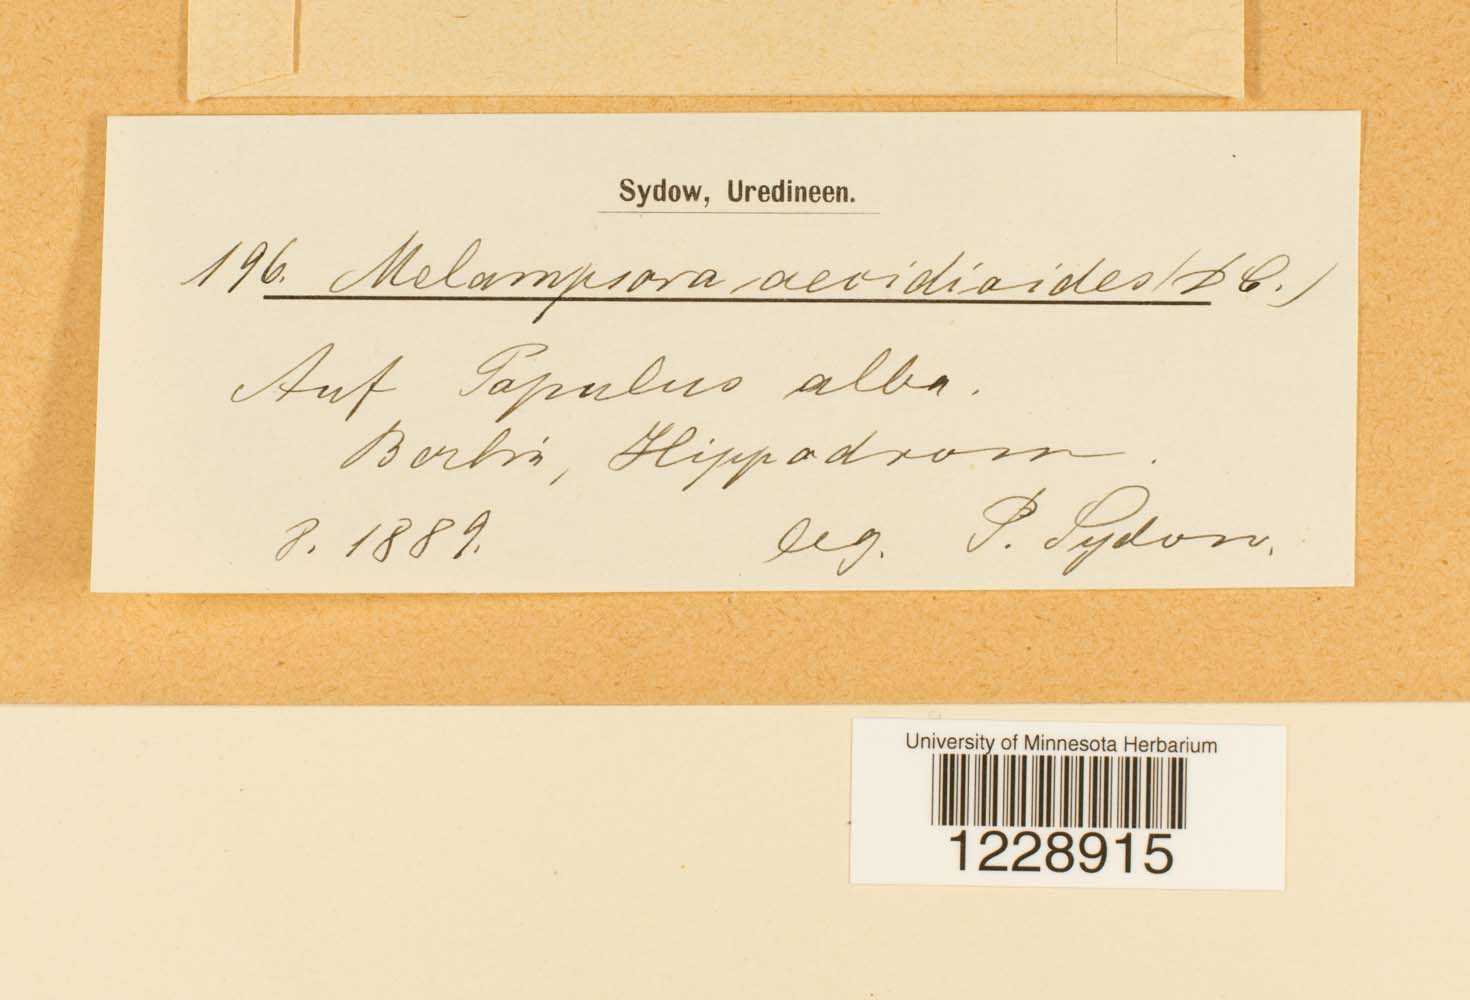 Sydow, Uredineen.
196. Melampsora aecidioides (DC.)
Auf Populus alba.
Berlin, Hippodrom.
8. 1889. leg. P. Sydow.
University of Minnesota Herbarium
1228915